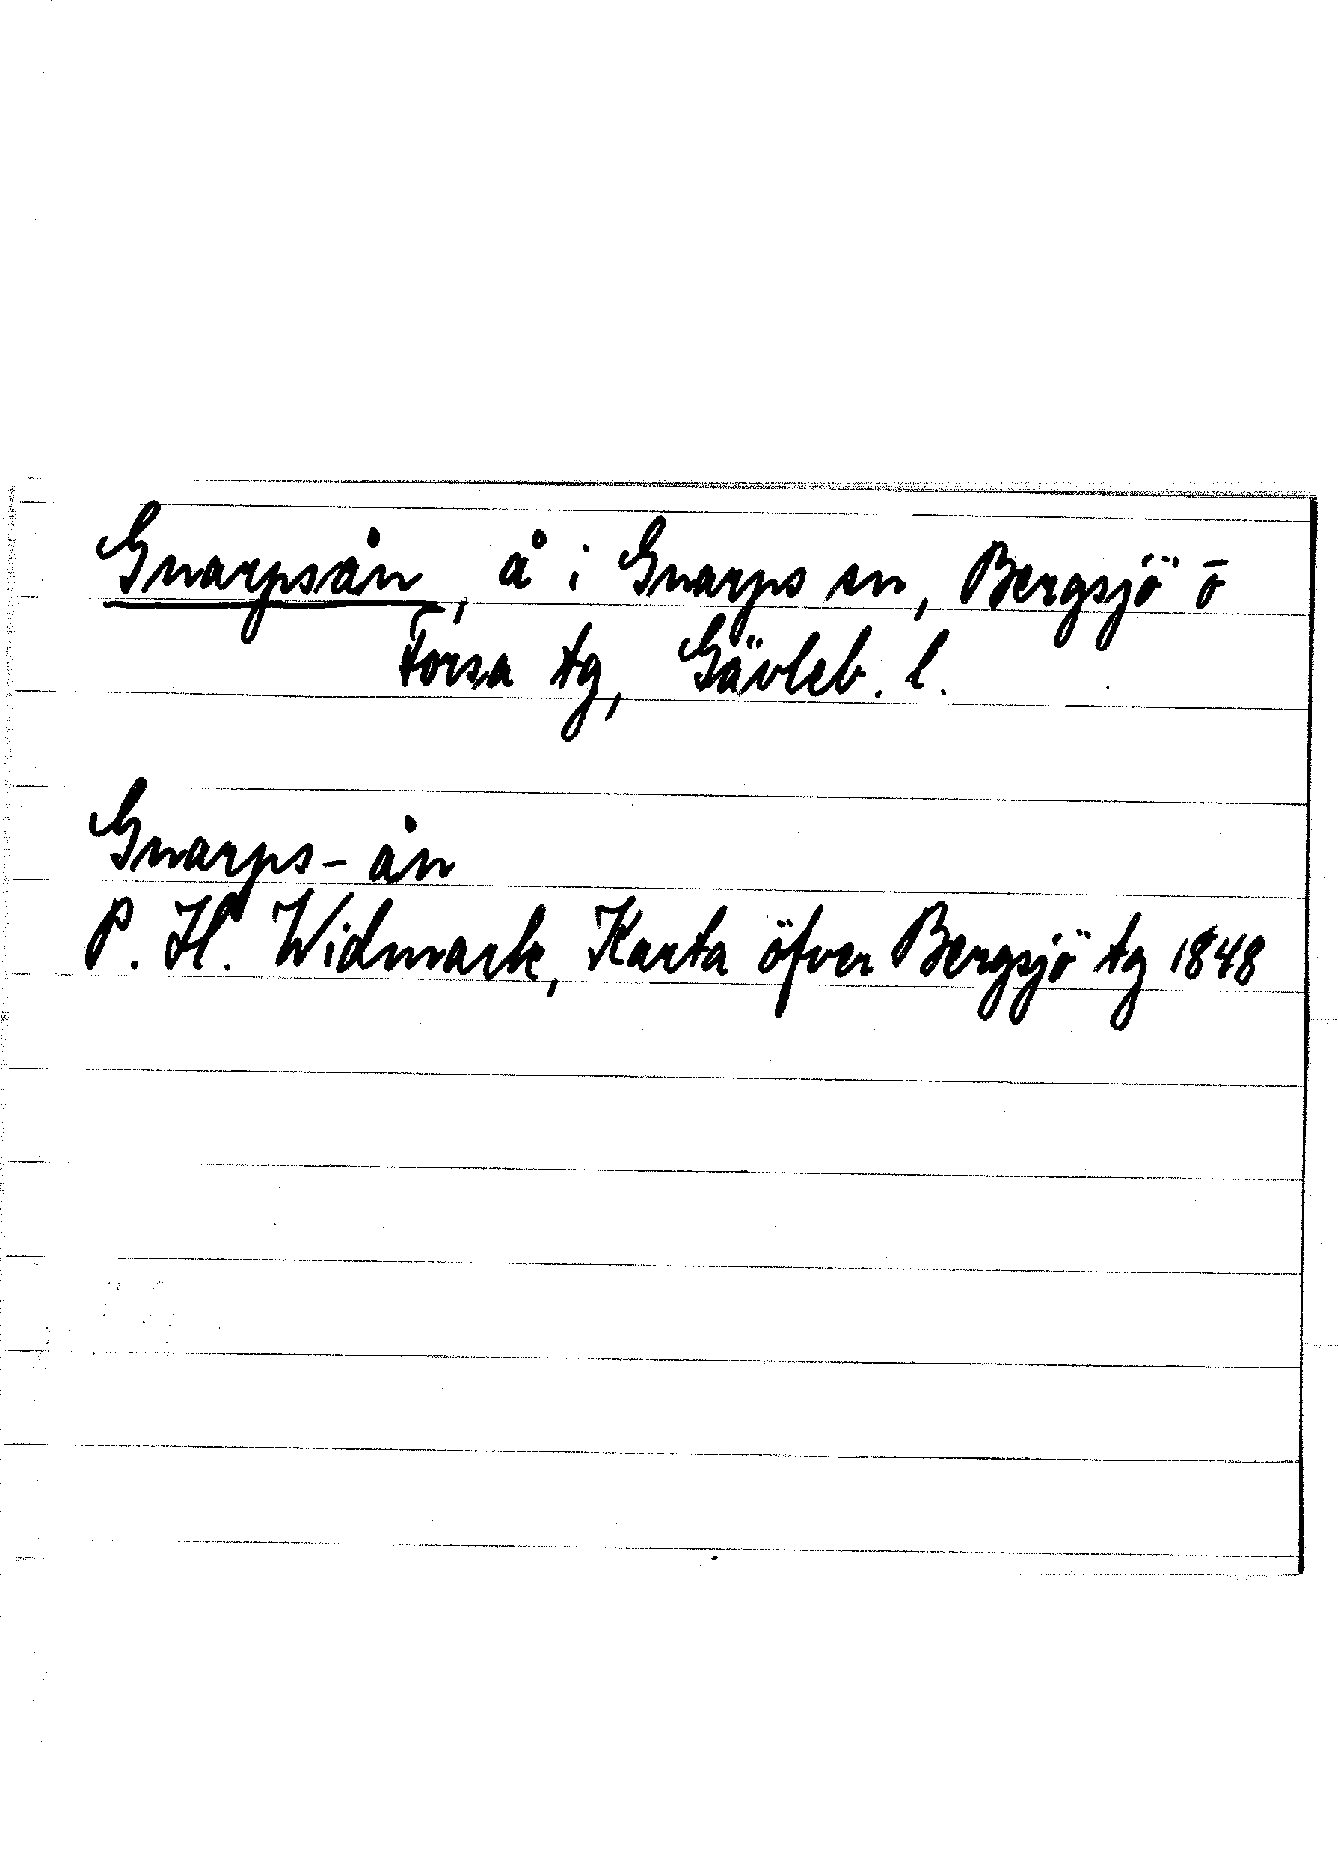 Gnarpsån, å i Gnarps sn, Bergsjö o
Forsa tg, Gävleb. l.
Gnarps-ån
P. H. Widmark, Karta öfver Bergsjö tg 1848